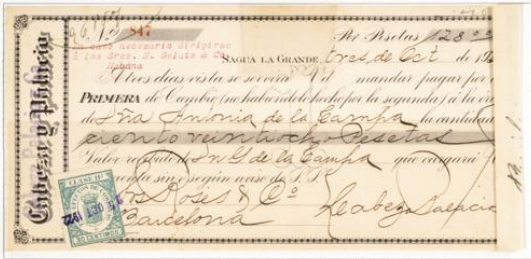 847
Por Pesetas 128.00
En caso necesario dirigirse
á los Sres. N. Gelats & Co.
Habana
SAGUA LA GRANDE tres de Oct de 192
A tres dias vista se servirá Vd mandar pagar por
PRIMERA de Cambio (no habiéndolo hecho por la segunda) á la
de Sña Antonia de la Campa la cantidad
ciento veintiocho Pesetas
Valor recibido de Sn G de la Campa que cargará
cuenta sin ó según aviso de S.S.
& Co
Barcelona
Cabeza y Palacio
CLASE 11ª
OCT 1922